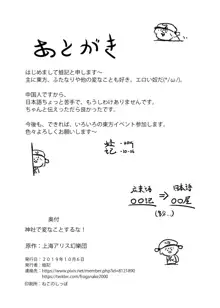 あとがき
はじめまして蛙記と申します〜
主に東方、ふたなりや他の変なことも好き。エロい奴だ(*/ω/)。
中国人ですから、
日本語ちょっと苦手で、もうしわけありませんです。
ちゃんと伝えったら良かったです。
今後も、できれば、いろいろの東方イベント参加します。
色々よろしくお願いします〜
蛙记
-10.06
立东语
日本语
→
00记
00屋
奥付
神社で変なことするな!
原作:上海アリス幻樂団
発行日:2019年10月6日
発行者:蛙記
連絡先:https://www.pixiv.net/member.php?id=8121890
https://twitter.com/frogsnake2000
印刷所:ねこのしっぽ